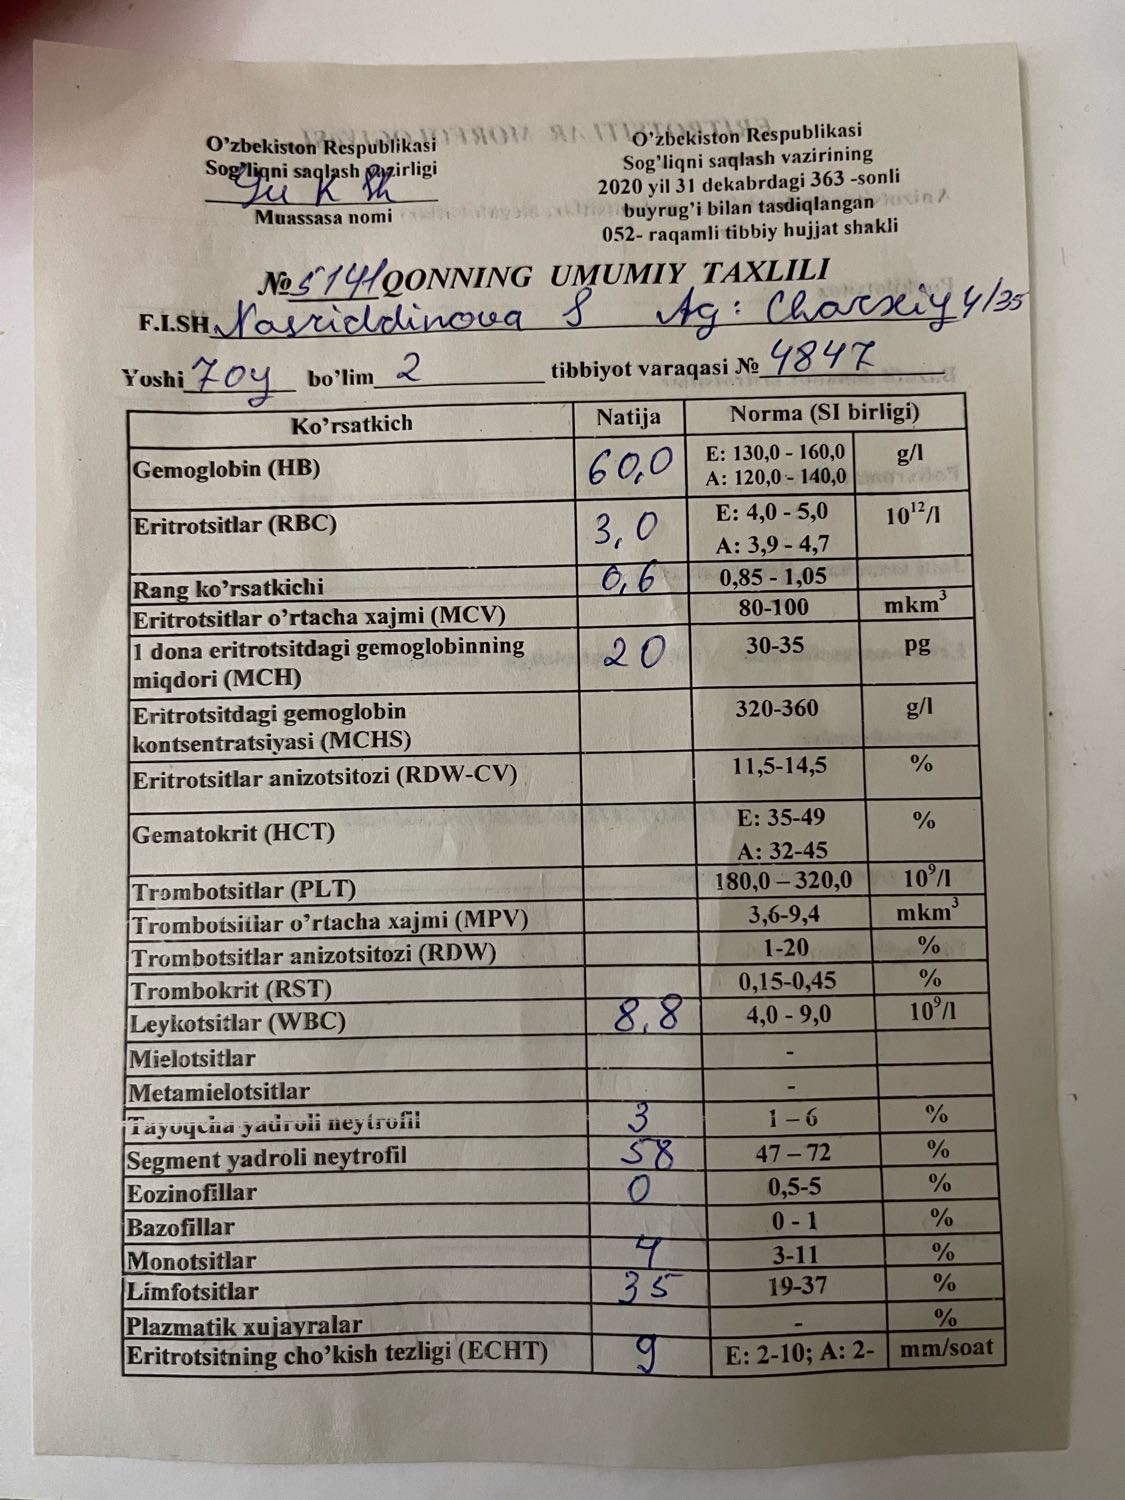 O'zbekiston Respublikasi
Sog'liqni saqlash vazirligi
Muassasa nomi
O'zbekiston Respublikasi
Sog'liqni saqlash vazirining
2020 yil 31 dekabrdagi 363 -sonli
buyrug'i bilan tasdiqlangan
052- raqamli tibbiy hujjat shakli
№ 5141 QONNING UMUMIY TAXLILI
F.I.SH Nasriddinova S Ag: Charxiy 4/35
Yoshi 7oy bo'lim 2 tibbiyot varaqasi № 4847
Ko'rsatkich Natija Norma (SI birligi)
Gemoglobin (HB) 60,0 E: 130,0 - 160,0 g/l
A: 120,0 - 140,0
Eritrotsitlar (RBC) 3,0 E: 4,0 - 5,0 10¹²/l
A: 3,9 - 4,7
Rang ko'rsatkichi 0,6 0,85 - 1,05
Eritrotsitlar o'rtacha xajmi (MCV) 80-100 mkm³
1 dona eritrotsitdagi gemoglobinning 20 30-35 pg
miqdori (MCH)
Eritrotsitdagi gemoglobin 320-360 g/l
kontsentratsiyasi (MCHS)
Eritrotsitlar anizotsitozi (RDW-CV) 11,5-14,5 %
Gematokrit (HCT) E: 35-49 %
A: 32-45
Trombotsitlar (PLT) 180,0 – 320,0 10⁹/l
Trombotsitlar o'rtacha xajmi (MPV) 3,6-9,4 mkm³
Trombotsitlar anizotsitozi (RDW) 1-20 %
Trombokrit (RST) 0,15-0,45 %
Leykotsitlar (WBC) 8,8 4,0 - 9,0 10⁹/l
Mielotsitlar -
Metamielotsitlar -
Tayoqcha yadroli neytrofil 3 1 – 6 %
Segment yadroli neytrofil 58 47 – 72 %
Eozinofillar 0 0,5-5 %
Bazofillar 0 - 1 %
Monotsitlar 4 3-11 %
Limfotsitlar 35 19-37 %
Plazmatik xujayralar - %
Eritrotsitning cho'kish tezligi (ECHT) 9 E: 2-10; A: 2- mm/soat